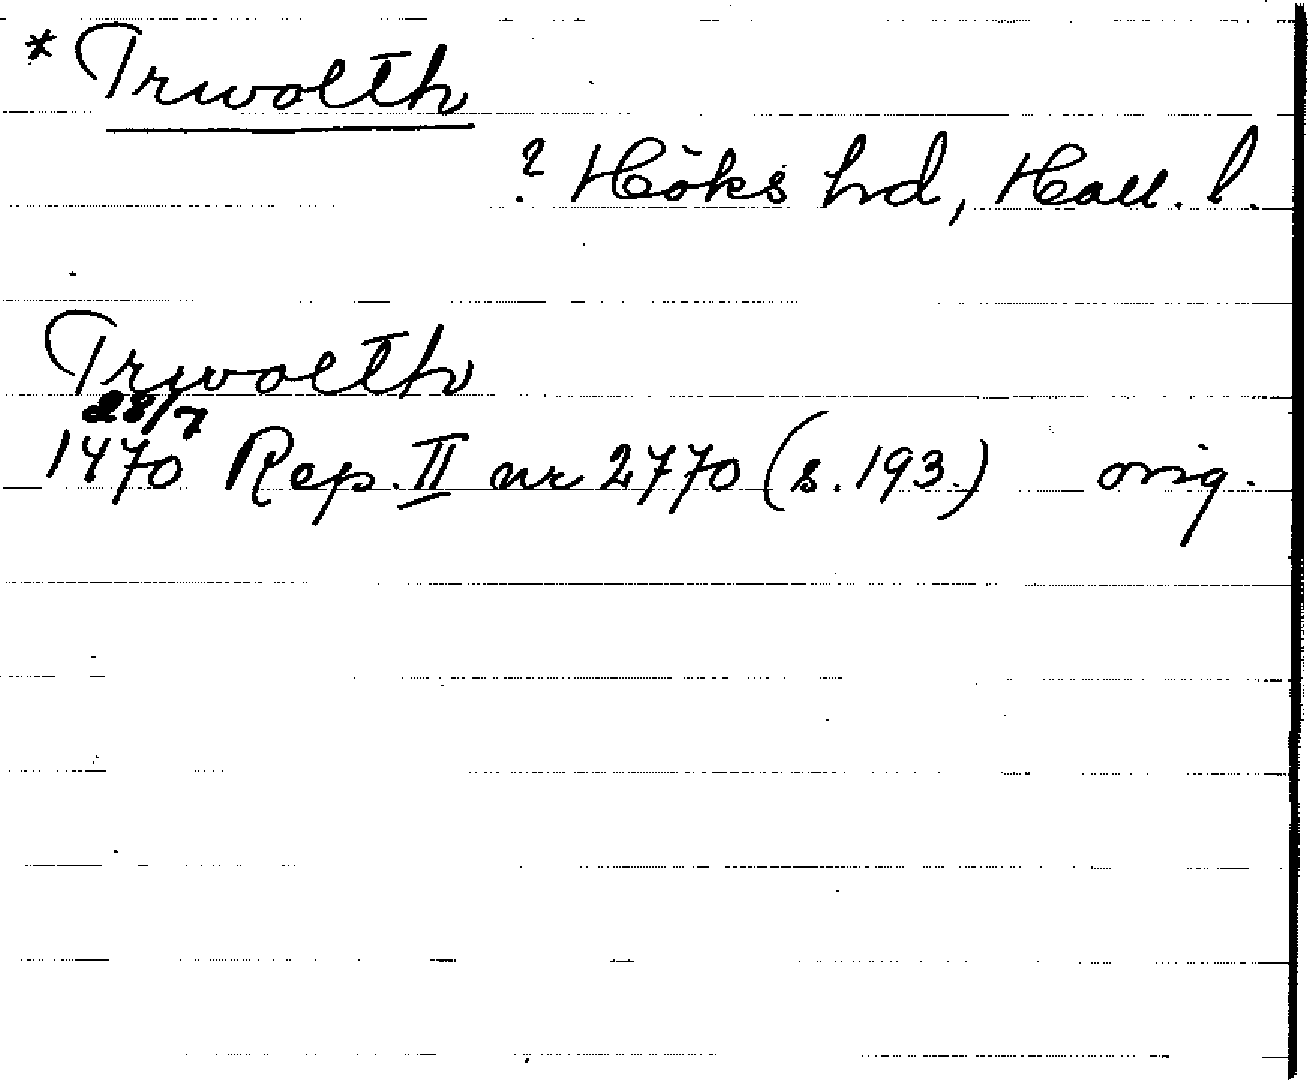 * Trwolth
? Höks hd, Hall. l.
Trwolth
28/7
1470 Rep. II nr 2770 (s. 193.) orig.